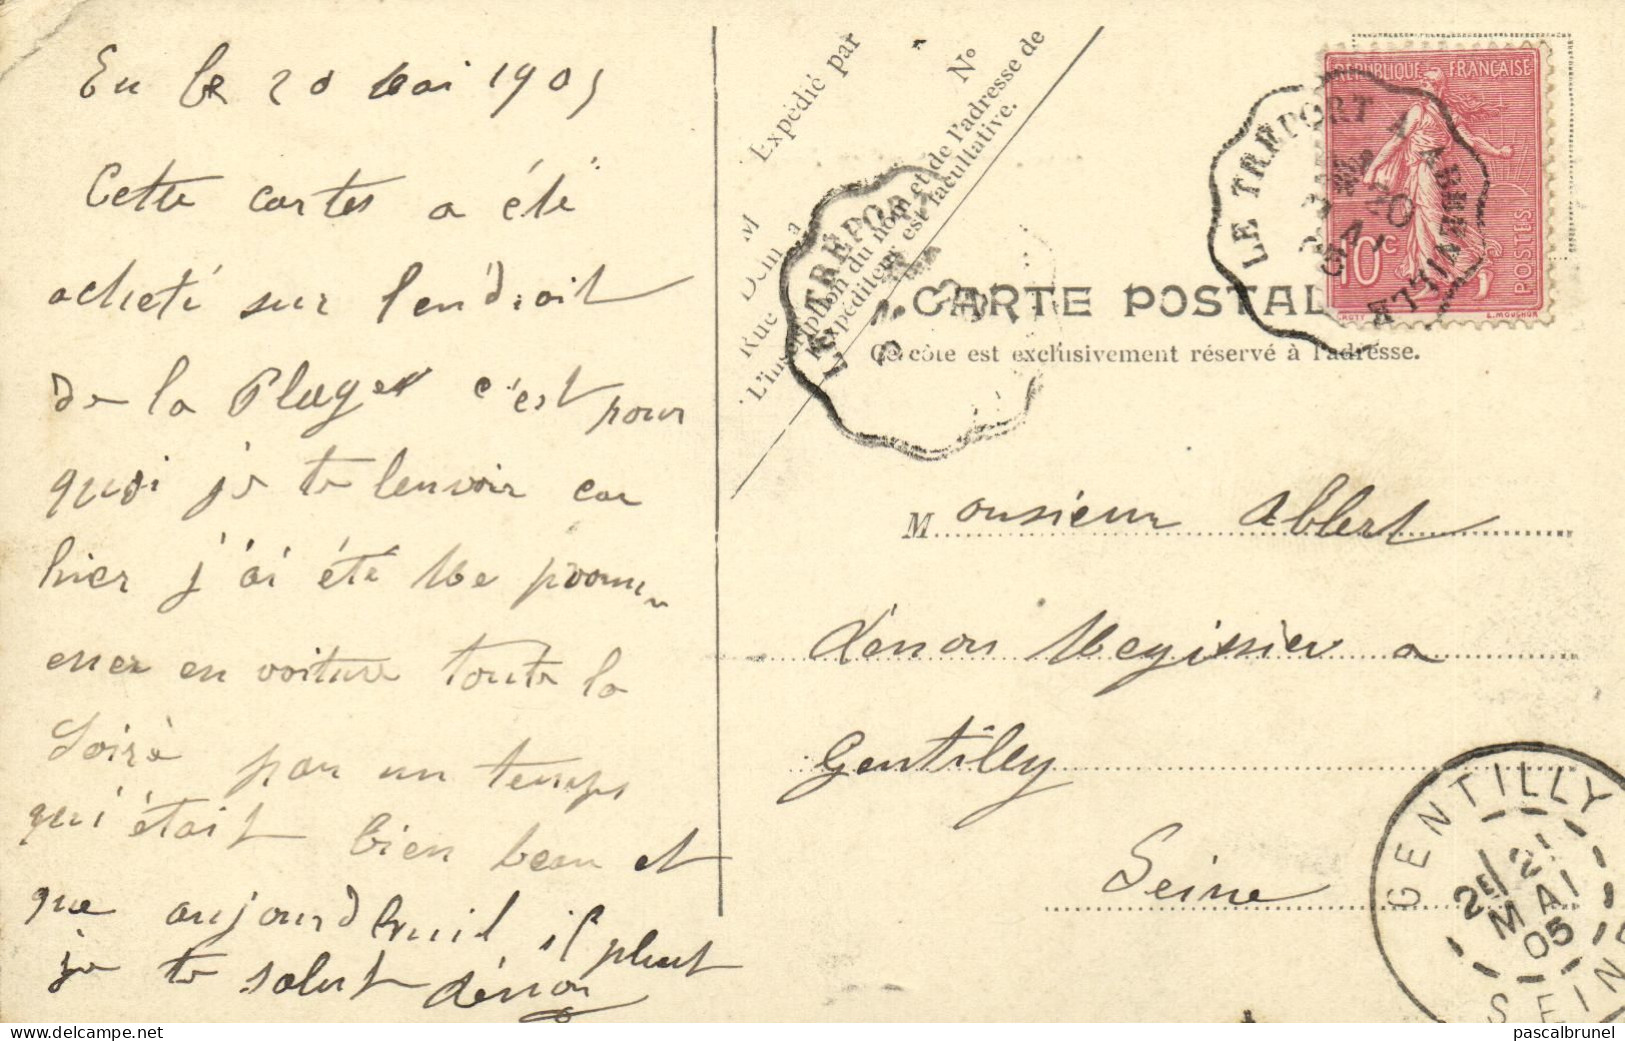 Eu le 20 Mai 1905
Cette cartes a été
acheté sur l'endroit
de la Plage c'est pour
quoi je te l'envoir car
hier j'ai été Me prom-
ener en voiture toute la
Soirè par un temps
qui était bien beau et
que aujourd'huit il pleut
je te salut Dénon
Expédié par
M
Rue
Dem. à
N°
L'inscription du nom et de l'adresse de
l'expéditeur est facultative.
LE TRÉPORT
CARTE POSTAL
Ce côté est exclusivement réservé à l'adresse.
RÉPUBLIQUE FRANÇAISE
10c
POSTES
ROTY
L. MOUCHON
LE TRÉPORT A ABBEVILLE
20
MAI
05
Monsieur Albert
Dénon Megissier a
Gentilly
Seine
GENTILLY
2E/21
MAI
05
SEINE
pascalbrunel